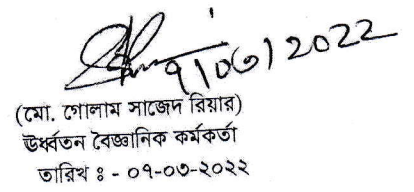 ৭/০৩/২০২২
(মো. গোলাম সাজেদ রিয়ার)
ঊর্ধ্বতন বৈজ্ঞানিক কর্মকর্তা
তারিখ ঃ - ০৭-০৩-২০২২